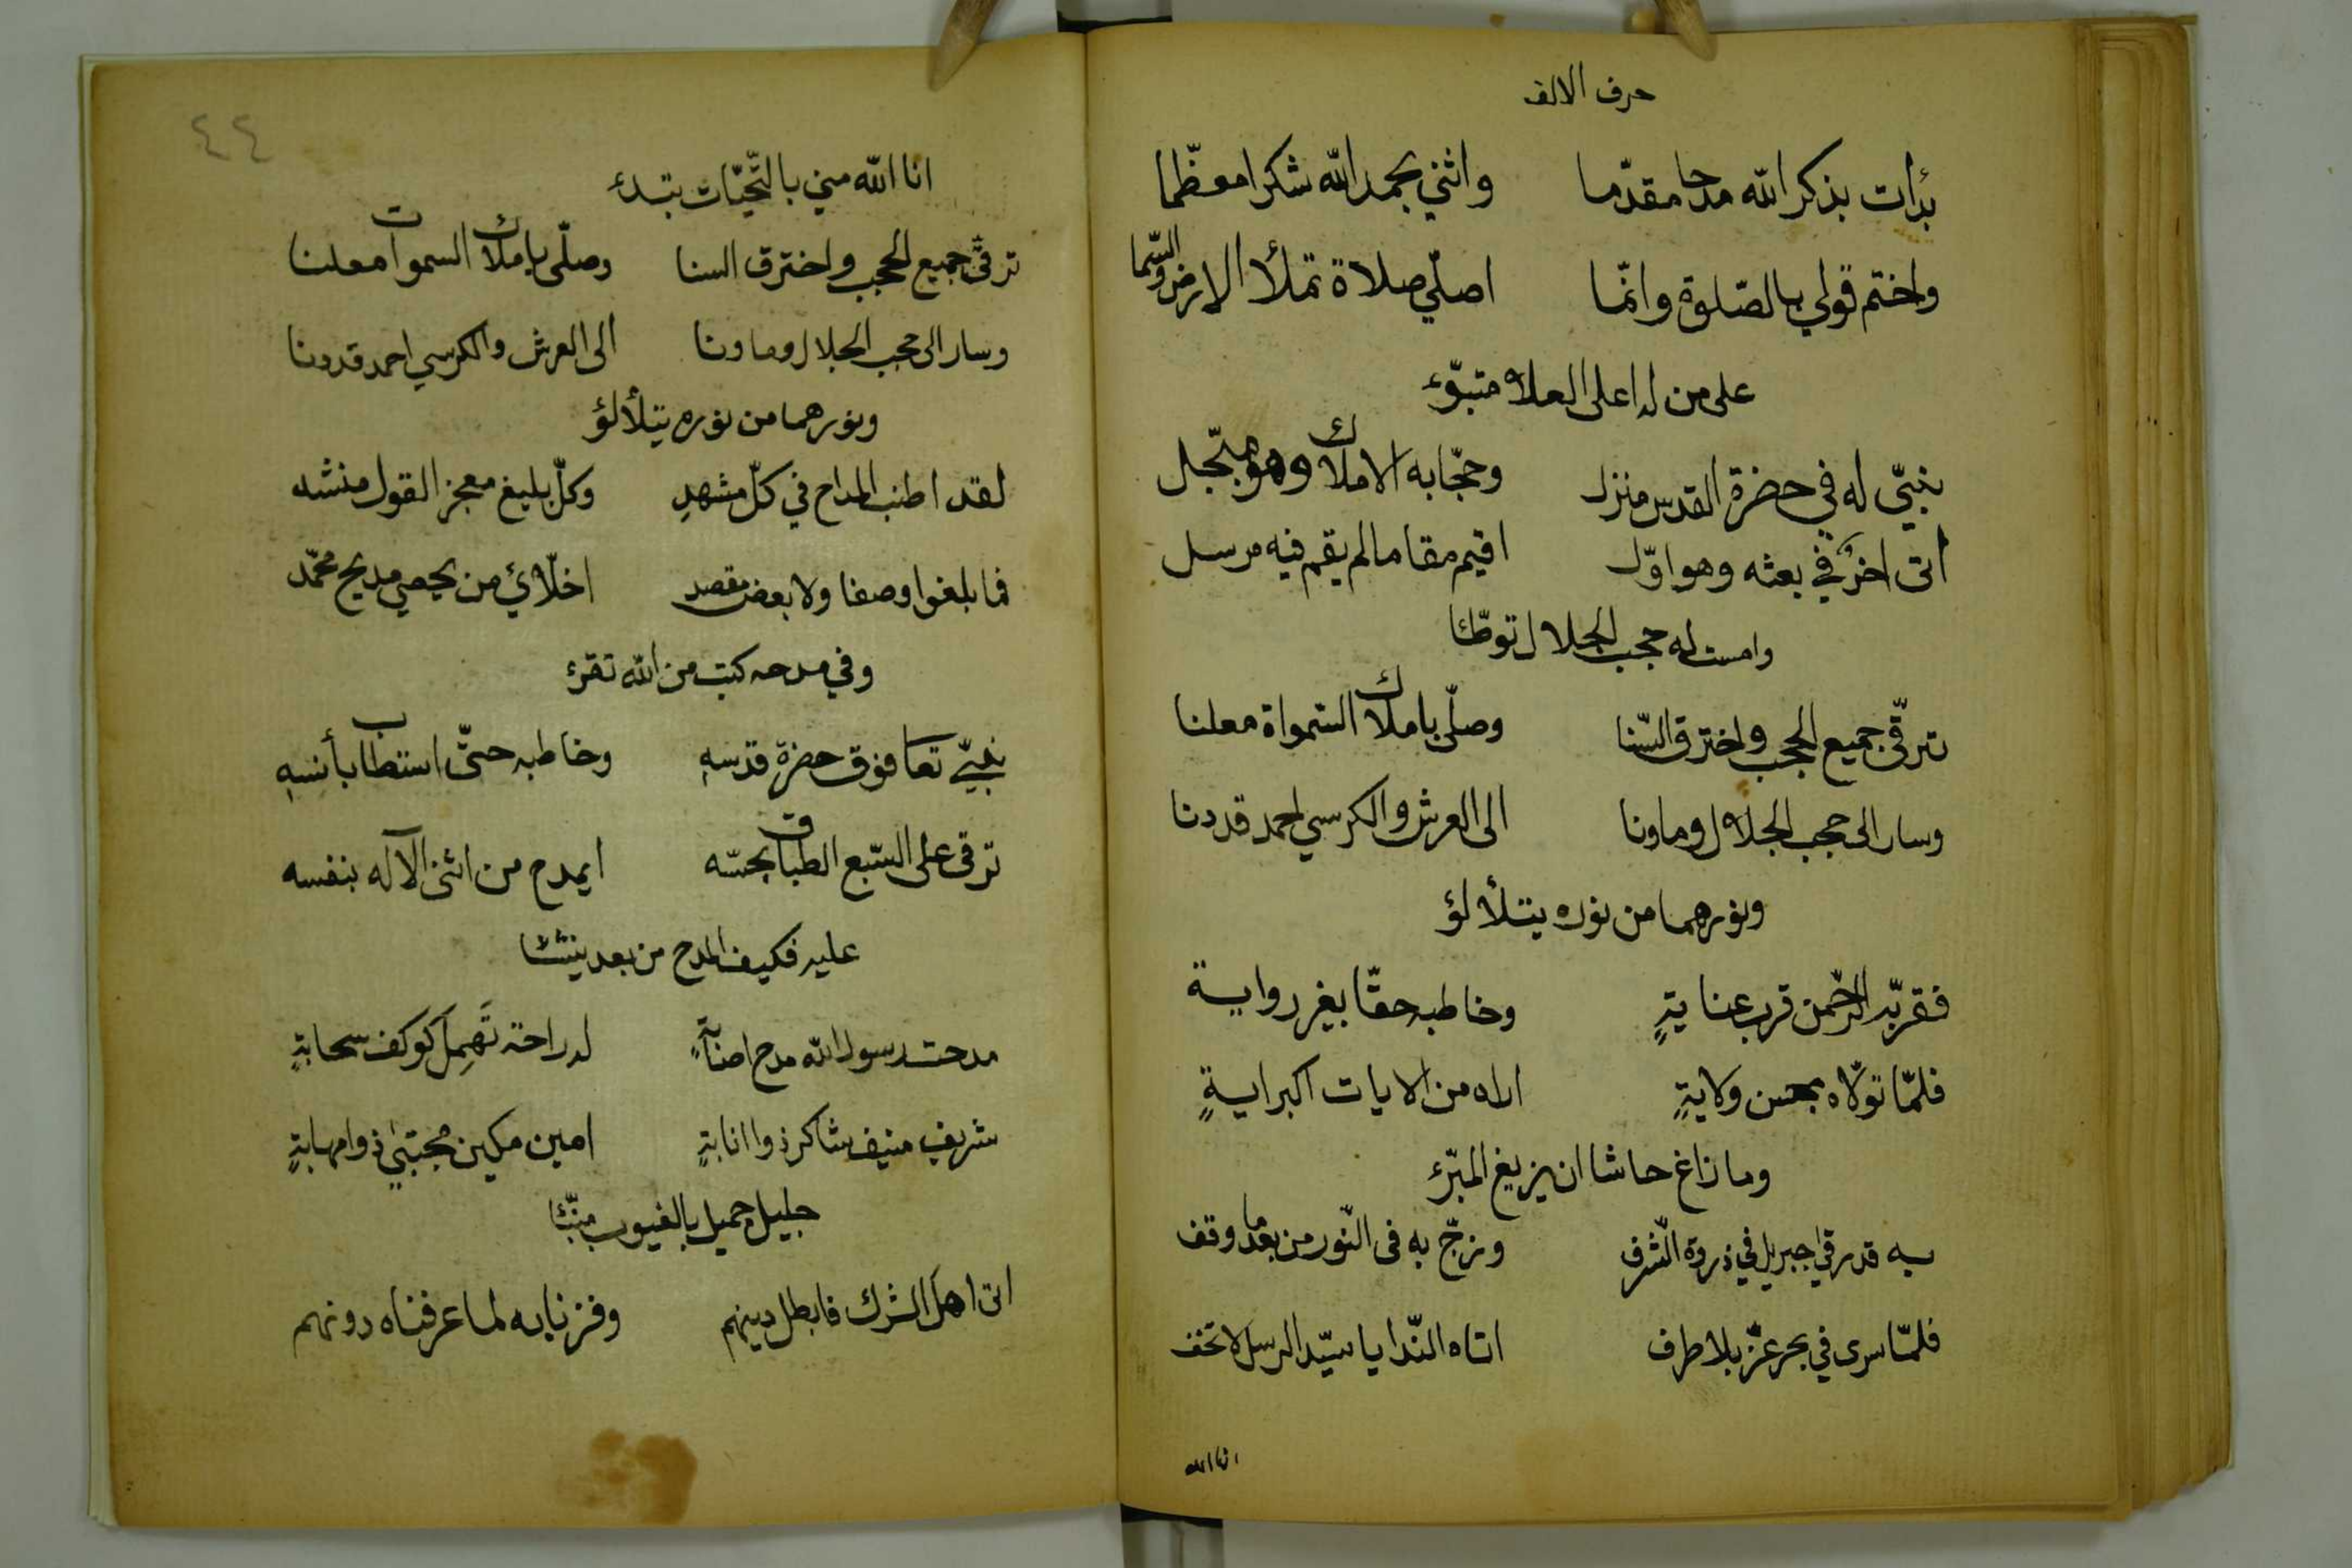 حرف الالف
بدأت بذكر الله مدحا مقدّما واثني بحمد الله شكرا معظّما
واختم قولي بالصّلوة وانّما اصلّي صلاة تملأ الارض والسّما
على من له اعلى العلاه متبوّء
نبيّ له في حضرة القدس منزل وحجّابه الاملاك وهو مبجّل
اتى اخرٌ في بعثه وهو اوّل اقيم مقاما لم يقم فيه مرسل
وامست له حجب الجلال توطّئا
ترقّى جميع الحجب واخترق السّنا وصلّى باملاك السّمواة معلنا
وسار الى حجب الجلال وما ونا الى العرش والكرسي احمد قد دنا
ونورهما من نوره يتلألؤ
فقربّه الرّحمن قرب عنايةٍ وخاطبه حقّا بغير رواية
فلمّا تولّاه بحسن ولايةٍ اراه من الايات اكبر ايةٍ
وما زاغ حاشا ان يزيغ المبرّء
به قد رقى جبريل في ذروة الشّرف وزجّ به فى النّور من بعد ما وقف
فلمّا سرى في بحر عزّ بلا طرف اتاه النّدا يا سيّد الرسل لا تخف
انا الله
٤٤
انا الله مني بالتّحيّات يبتدء
ترقّى جميع الحجب واخترق السنا وصلّى باملاك السموات معلنا
وسار الى حجب الجلال وما ونا الى العرش والكرسي احمد قد دنا
ونورهما من نوره يتلألؤ
لقد اطنب المداح في كلّ مشهدِ وكلّ بليغ معجز القول منشد
فما بلغوا وصفا ولا بعض مقصد اخلّائي من يحصي مديح محمّد
وفي مدحه كتب من الله تقرء
نبيّ تعا فوق حضرة قدسهِ وخاطبه حتّى استطاب بأنسهِ
ترقى على السّبع الطباق بحسّه ايمدح من اثنى الآله بنفسه
عليه فكيف المدح من بعد ينشئا
مدحت رسول الله مدح اصابةٍ له راحة تَهمِل كوكف سحابةٍ
شريف منيف شاكر ذوا انابةٍ امين مكين مجتبىٍ ذوا مهابةٍ
جليل جميل بالغيوب منبّئا
اتى اهل الشرك فابطل دينهم وفزنا به لما عرفناه دونهم